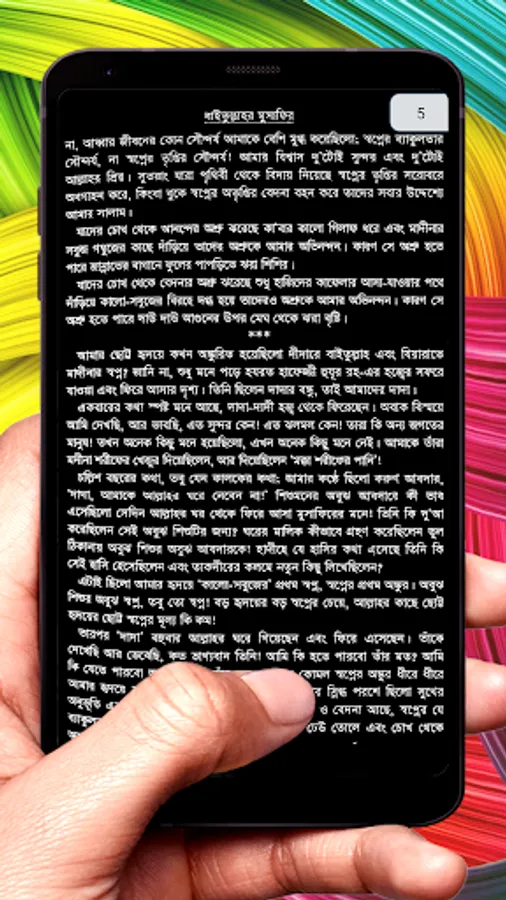 বাইতুল্লাহর মুসাফির
5
না, আব্বার জীবনের কোন সৌন্দর্য আমাকে বেশি মুগ্ধ করেছিলো; স্বপ্নের ব্যাকুলতার
সৌন্দর্য, না স্বপ্নের তৃপ্তির সৌন্দর্য! আমার বিশ্বাস দু'টোই সুন্দর এবং দু'টোই
আল্লাহর প্রিয়। সুতরাং যারা পৃথিবী থেকে বিদায় নিয়েছে স্বপ্নের তৃপ্তির সরোবরে
অবগাহন করে, কিংবা বুকে স্বপ্নের অতৃপ্তির বেদনা বহন করে তাদের সবার উদ্দেশ্যে
আমার সালাম।
যাদের চোখ থেকে আনন্দের অশ্রু ঝরেছে কা'বার কালো গিলাফ ধরে এবং মাদীনার
সবুজ গম্বুজের কাছে দাঁড়িয়ে তাদের অশ্রুকে আমার অভিনন্দন। কারণ সে অশ্রু হতে
পারে জান্নাতের বাগানে ফুলের পাপড়িতে ঝরা শিশির।
যাদের চোখ থেকে বেদনার অশ্রু ঝরেছে শুধু হাজিদের কাফেলার আসা-যাওয়ার পথে
দাঁড়িয়ে কালো-সবুজের বিরহে দগ্ধ হয়ে তাদেরও অশ্রুকে আমার অভিনন্দন। কারণ সে
অশ্রু হতে পারে দাউ দাউ আগুনের উপর মেঘ থেকে ঝরা বৃষ্টি।
***
আমার ছোট্ট হৃদয়ে কখন অঙ্কুরিত হয়েছিলো দীদারে বাইতুল্লাহ এবং যিয়ারাতে
মাদীনার স্বপ্ন? জানি না, শুধু মনে পড়ে হযরত হাফেজ্জী হুযূর রহ-এর হজ্বের সফরে
যাওয়া এবং ফিরে আসার দৃশ্য। তিনি ছিলেন দাদার বন্ধু, তাই আমাদের দাদা।
একবারের কথা স্পষ্ট মনে আছে, দাদা-দাদী হজ্ব থেকে ফিরেছেন। অবাক বিস্ময়ে
আমি দেখছি, আর ভাবছি, এত সুন্দর কেন! এত ঝলমল কেন! তারা কি অন্য জগতের
মানুষ! তখন অনেক কিছু মনে হয়েছিলো, এখন অনেক কিছু মনে নেই। আমাকে তাঁরা
মদীনা শরীফের খেজুর দিয়েছিলেন, আর দিয়েছিলেন 'মক্কা শরীফের পানি'!
চল্লিশ বছরের কথা, তবু যেন কালকের কথা; আমার কণ্ঠে ছিলো করুণ আবদার,
'দাদা, আমাকে আল্লাহর ঘরে নেবেন না!' শিশুমনের অবুঝ আবদারে কী ভাব
এসেছিলো সেদিন আল্লাহর ঘর থেকে ফিরে আসা মুসাফিরের মনে! তিনি কি দু'আ
করেছিলেন সেই অবুঝ শিশুটির জন্য? ঘরের মালিক কীভাবে গ্রহণ করেছিলেন ভুল
ঠিকানার অবুঝ শিশুর অবুঝ আবদারকে! হাদীছে যে হাসির কথা এসেছে তিনি কি
সেই হাসি হেসেছিলেন এবং তাকদীরের কলমে নতুন কিছু লিখেছিলেন?
এটাই ছিলো আমার হৃদয়ে 'কালো-সবুজের' প্রথম স্বপ্ন, স্বপ্নের প্রথম অঙ্কুর। অবুঝ
শিশুর অবুঝ স্বপ্ন, তবু তো স্বপ্ন! বড় হৃদয়ের বড় স্বপ্নের চেয়ে, আল্লাহর কাছে ছোট্ট
হৃদয়ের ছোট্ট স্বপ্নের মূল্য কি কম!
তারপর 'দাদা' বহুবার আল্লাহর ঘরে গিয়েছেন এবং ফিরে এসেছেন। তাঁকে
দেখেছি আর ভেবেছি, কত ভাগ্যবান তিনি! আমি কি হতে পারবো তাঁর মত? আমি
কি যেতে পারবো কোমল স্বপ্নের অঙ্কুর ধীরে ধীরে
আমার হৃদয়ে স্নিগ্ধ পরশে ছিলো সুখের
অনুভূতি ও বেদনা আছে, স্বপ্নের যে
ঢেউ তোলে এবং চোখ থেকে